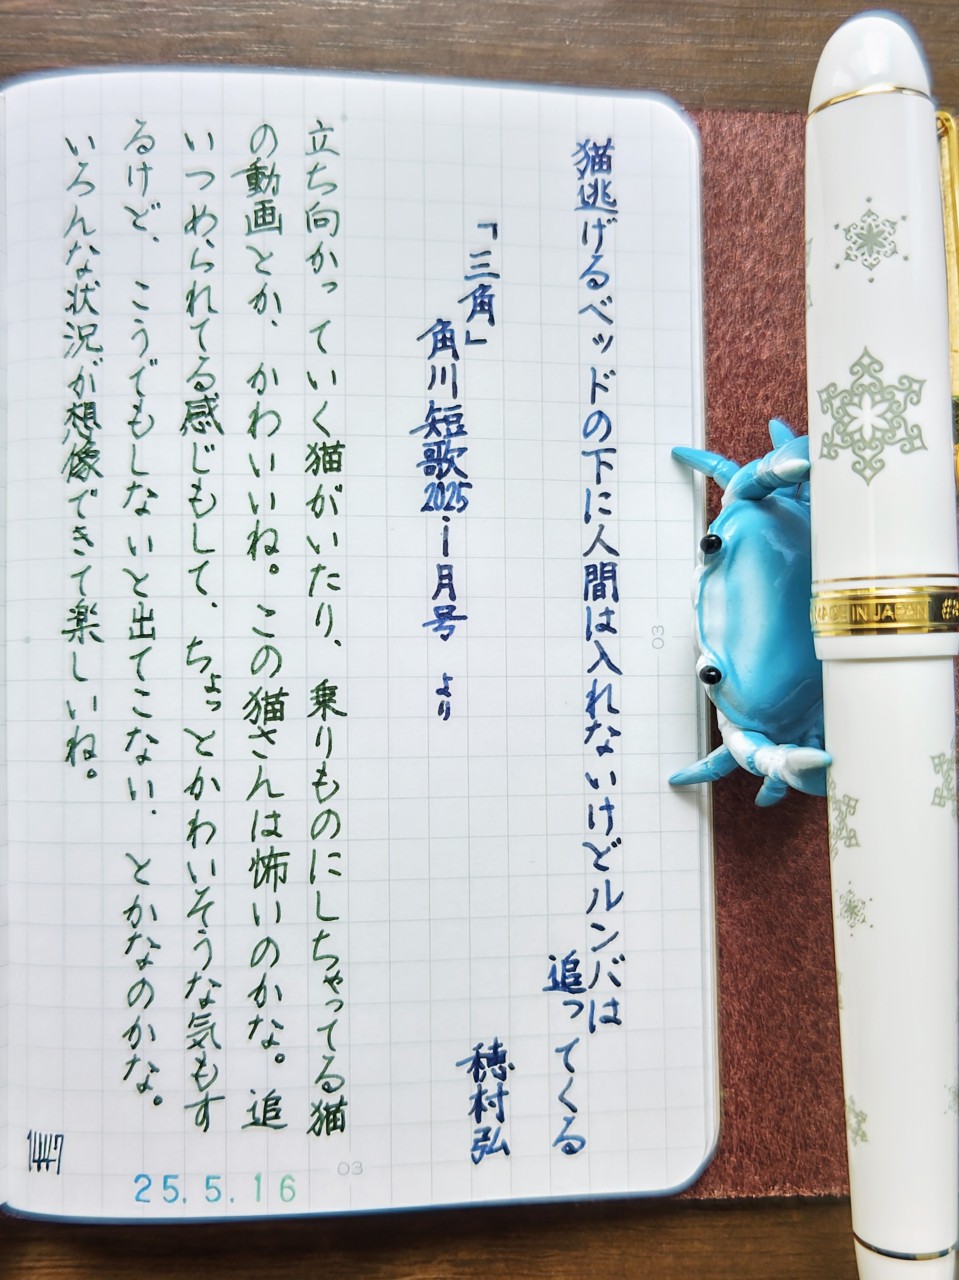 猫逃げるベッドの下に人間は入れないけどルンバは
追ってくる
穂村弘
「三角」
角川短歌2025.1月号 より
立ち向かっていく猫がいたり、乗りものにしちゃってる猫
の動画とか、かわいいね。この猫さんは怖いのかな。追
いつめられてる感じもして、ちょっとかわいそうな気もす
るけど、こうでもしないと出てこない、とかなのかな。
いろんな状況が想像できて楽しいね。
25.5.16
03
03
MADE IN JAPAN